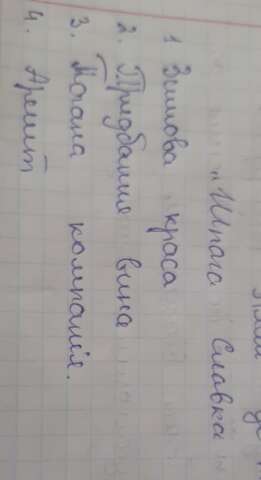 „Шпага Славка"
1 Зимова краса
2. Придбання вина
3. Погана компанія.
4. Арешт